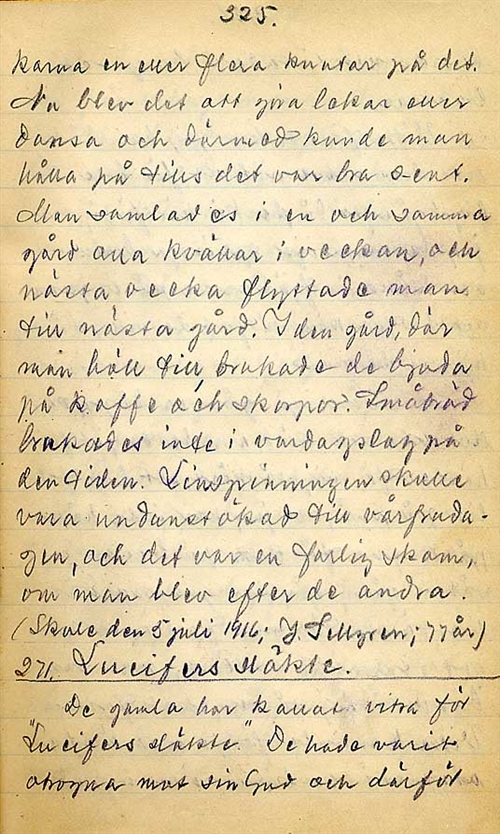 325.
karna en eller flera knutar på det.
Nu blev det att göra lekar eller
dansa och därmed kunde man
hålla på tills det var bra sent.
Man samlades i en och samma
gård alla kvällar i veckan, och
nästa vecka flyttade man
till nästa gård. I den gård, där
man höll till brukade de bjuda
på kaffe och skorpor. Småbröd
brukades inte i vardagslag på
den tiden. Linspinningen skulle
vara undanstökad till vårfruda-
gen, och det var en farlig skam,
om man blev efter de andra.
(Skule den 5 juli 1916; J. Sellgren; 77 år)
271. Lucifers släkte.
De gamla har kallat vitra för
"Lucifers släkte." De hade varit
otrogna mot sin Gud och därför